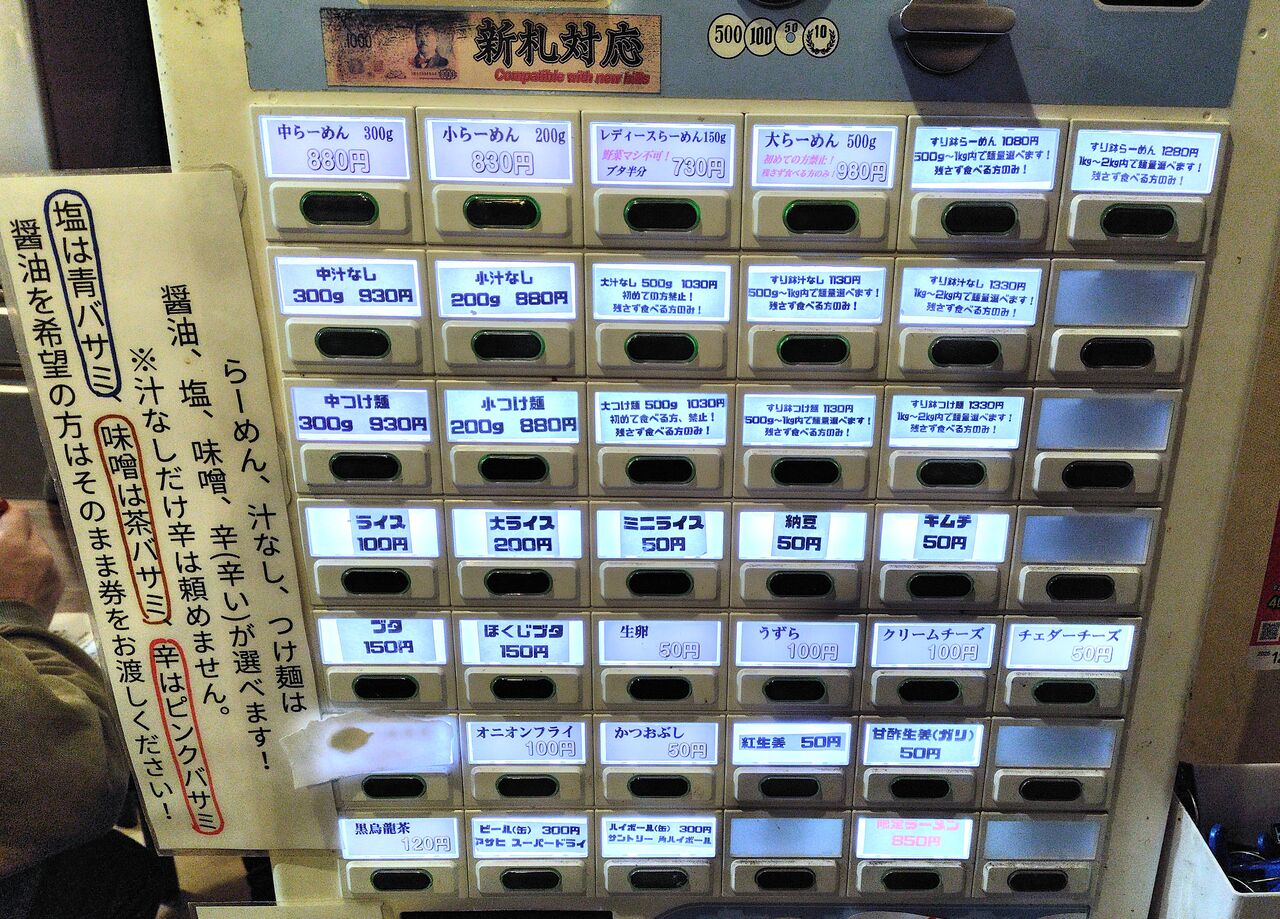 1000
新札対応
Compatible with new bills
500 100 50 10
中らーめん 300g
880円
小らーめん 200g
830円
レディースらーめん150g
野菜マシ不可!
ブタ半分
730円
大らーめん 500g
初めての方禁止!
残さず食べる方のみ!
980円
すり鉢らーめん 1080円
500g〜1kg内で麺量選べます!
残さず食べる方のみ!
すり鉢らーめん 1280円
1kg〜2kg内で麺量選べます!
残さず食べる方のみ!
中汁なし
300g 930円
小汁なし
200g 880円
大汁なし 500g 1030円
初めての方禁止!
残さず食べる方のみ!
すり鉢汁なし 1130円
500g〜1kg内で麺量選べます!
残さず食べる方のみ!
すり鉢汁なし 1330円
1kg〜2kg内で麺量選べます!
残さず食べる方のみ!
中つけ麺
300g 930円
小つけ麺
200g 880円
大つけ麺 500g 1030円
初めて食べる方、禁止!
残さず食べる方のみ!
すり鉢つけ麺 1130円
500g〜1kg内で麺量選べます!
残さず食べる方のみ!
すり鉢つけ麺 1330円
1kg〜2kg内で麺量選べます!
残さず食べる方のみ!
ライス
100円
大ライス
200円
ミニライス
50円
納豆
50円
キムチ
50円
ブタ
150円
ほぐしブタ
150円
生卵
50円
うずら
100円
クリームチーズ
100円
チェダーチーズ
50円
オニオンフライ
100円
かつおぶし
50円
紅生姜 50円
甘酢生姜(ガリ)
50円
黒烏龍茶
120円
ビール(缶) 300円
アサヒ スーパードライ
ハイボール(缶) 300円
サントリー 角ハイボール
限定ラーメン
850円
らーめん、汁なし、つけ麺は
醤油、塩、味噌、辛(辛い)が選べます!
※汁なしだけ辛は頼めません。
塩は青バサミ 味噌は茶バサミ 辛はピンクバサミ
醤油を希望の方はそのまま券をお渡しください!